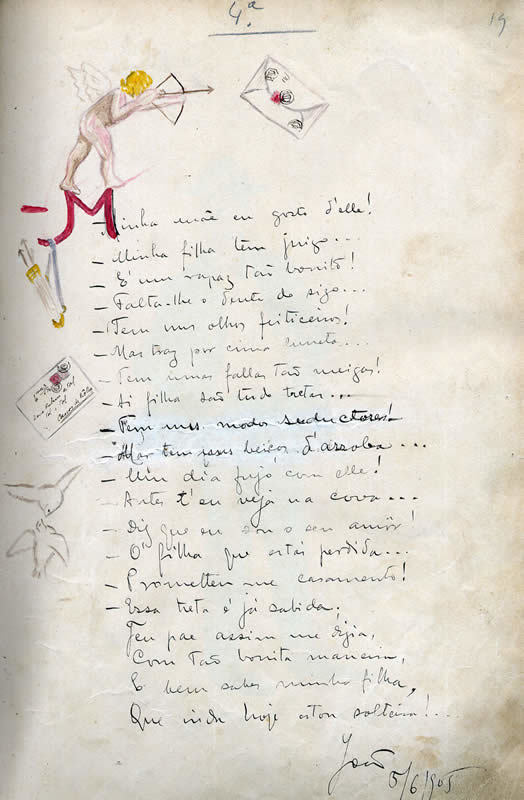 4.ª
19
- Minha mãe eu gosto d'elle!
- Minha filha tem juizo...
- E' um rapaz tão bonito!
- Falta-lhe o dente do sizo...
- Tem uns olhos feiticeiros!
- Mas traz por cima luneta...
- Tem umas fallas tão meigas!
- Ai filha são tudo tretas...
- Tem uns modos seductores!
- Mas tem esses beiços d'assoba...
- Um dia fujo com elle!
- Antes t'eu veja na cova...
- Diz que eu sou o seu amôr!
- O' filha que estás perdida...
- Prometteu-me casamento!
- Essa treta é já sabida.
Teu pae assim me dizia,
Com tão bonita maneira,
E bem sabes minha filha,
Que inda hoje estou solteira!...
João
5/6/905